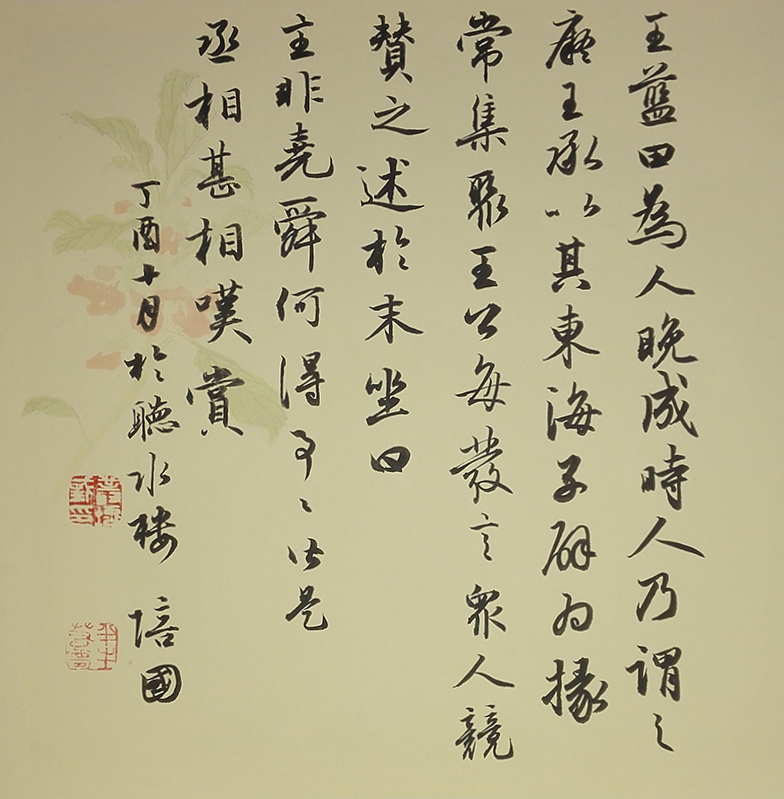 王藍田為人晚成時人乃謂之
癡王承以其東海子辟為掾
常集聚王公每發言眾人競
贊之述於末坐曰
主非堯舜何得事〻皆是
丞相甚相嘆賞
丁酉十月於聽水樓 培國